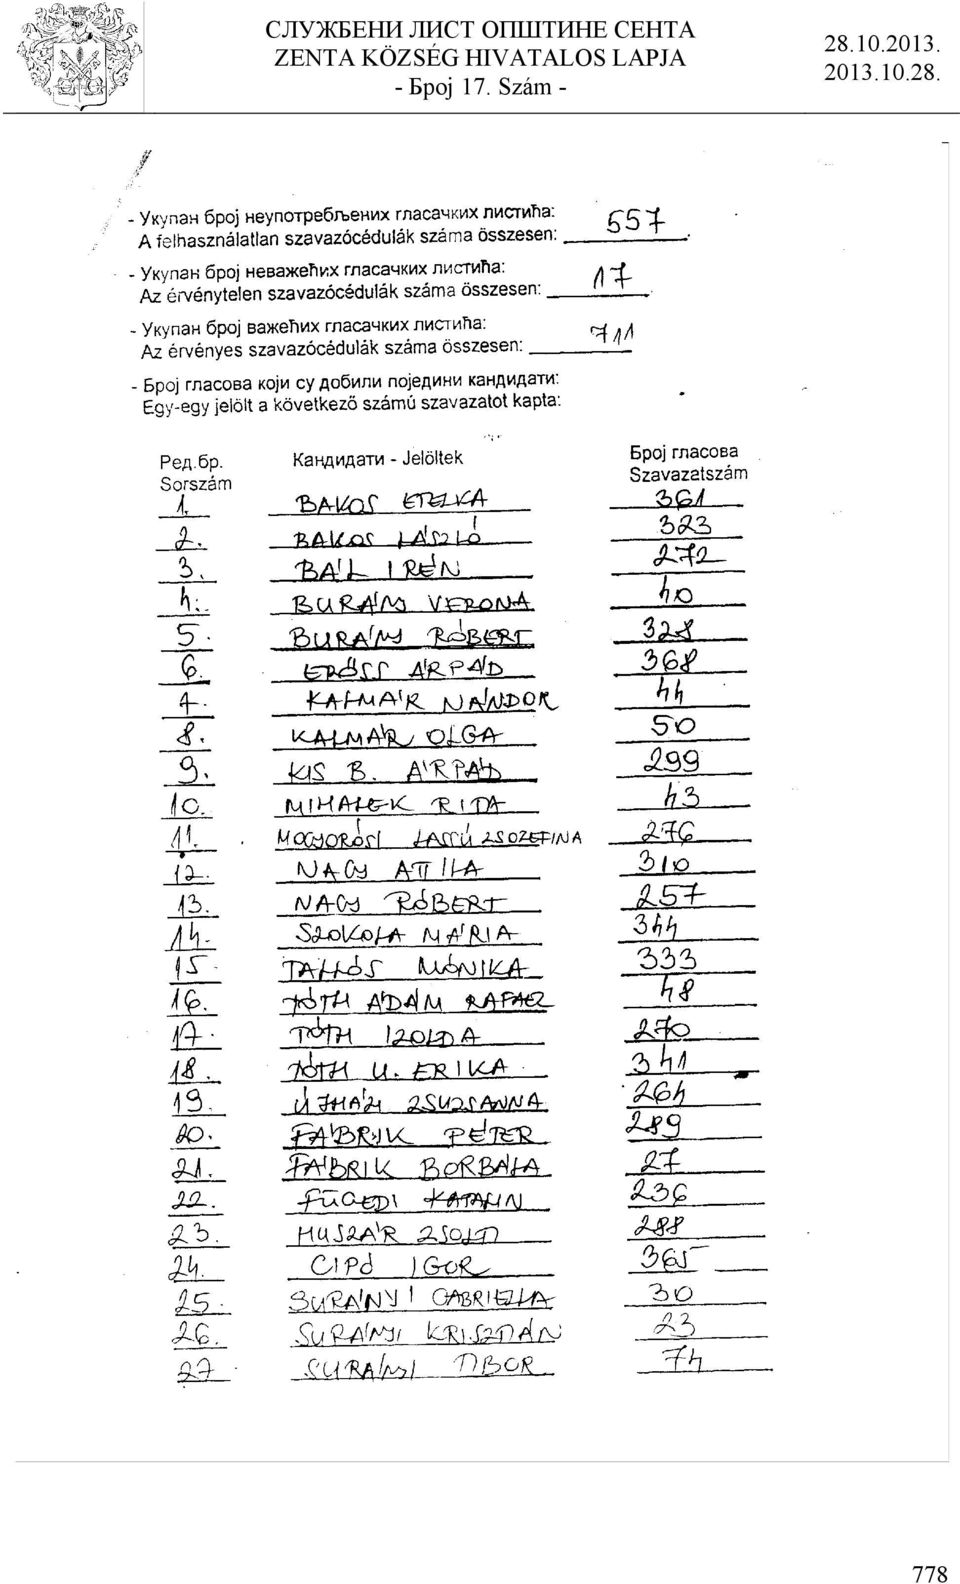 СЛУЖБЕНИ ЛИСТ ОПШТИНЕ СЕНТА
ZENTA KÖZSÉG HIVATALOS LAPJA
- Број 17. Szám -
28.10.2013.
2013.10.28.
- Укупан број неупотребљених гласачких листића:
A felhasználatlan szavazócédulák száma összesen: 557.
- Укупан број неважећих гласачких листића:
Az érvénytelen szavazócédulák száma összesen: 17.
- Укупан број важећих гласачких листића:
Az érvényes szavazócédulák száma összesen: 711
- Број гласова који су добили поједини кандидати:
Egy-egy jelölt a következő számú szavazatot kapta:
Ред.бр. Кандидати - Jelöltek Број гласова
Sorszám Szavazatszám
1. BAKOS ETELKA 361
2. BAKOS LÁSZLÓ 323
3. BÁL IRÉN 272
4. BURÁNY VERONA 40
5. BURÁNY RÓBERT 328
6. ERŐSS ÁRPÁD 368
7. KALMÁR NÁNDOR 44
8. KALMÁR OLGA 50
9. KIS B. ÁRPÁD 299
10. MIHALEK RITA 43
11. MOGYORÓSI LASSÚ ZSOZEFINA 276
12. NAGY ATTILA 310
13. NAGY RÓBERT 257
14. SZOKOLA MÁRIA 344
15. TALLÓS MÓNIKA 333
16. TÓTH ÁDÁM RAFAEL 48
17. TÓTH IZOLDA 270
18. TÓTH U. ERIKA 341
19. ÚJHÁZI ZSUZSANNA 264
20. FÁBRIK PÉTER 289
21. FÁBRIK BORBÁLA 27
22. FÜGEDI KATALIN 236
23. HUSZÁR ZSOLT 288
24. CIPÓ IGOR 365
25. SURÁNYI GABRIELLA 30
26. SURÁNYI KRISZTIÁN 23
27. SURÁNYI TIBOR 74
778